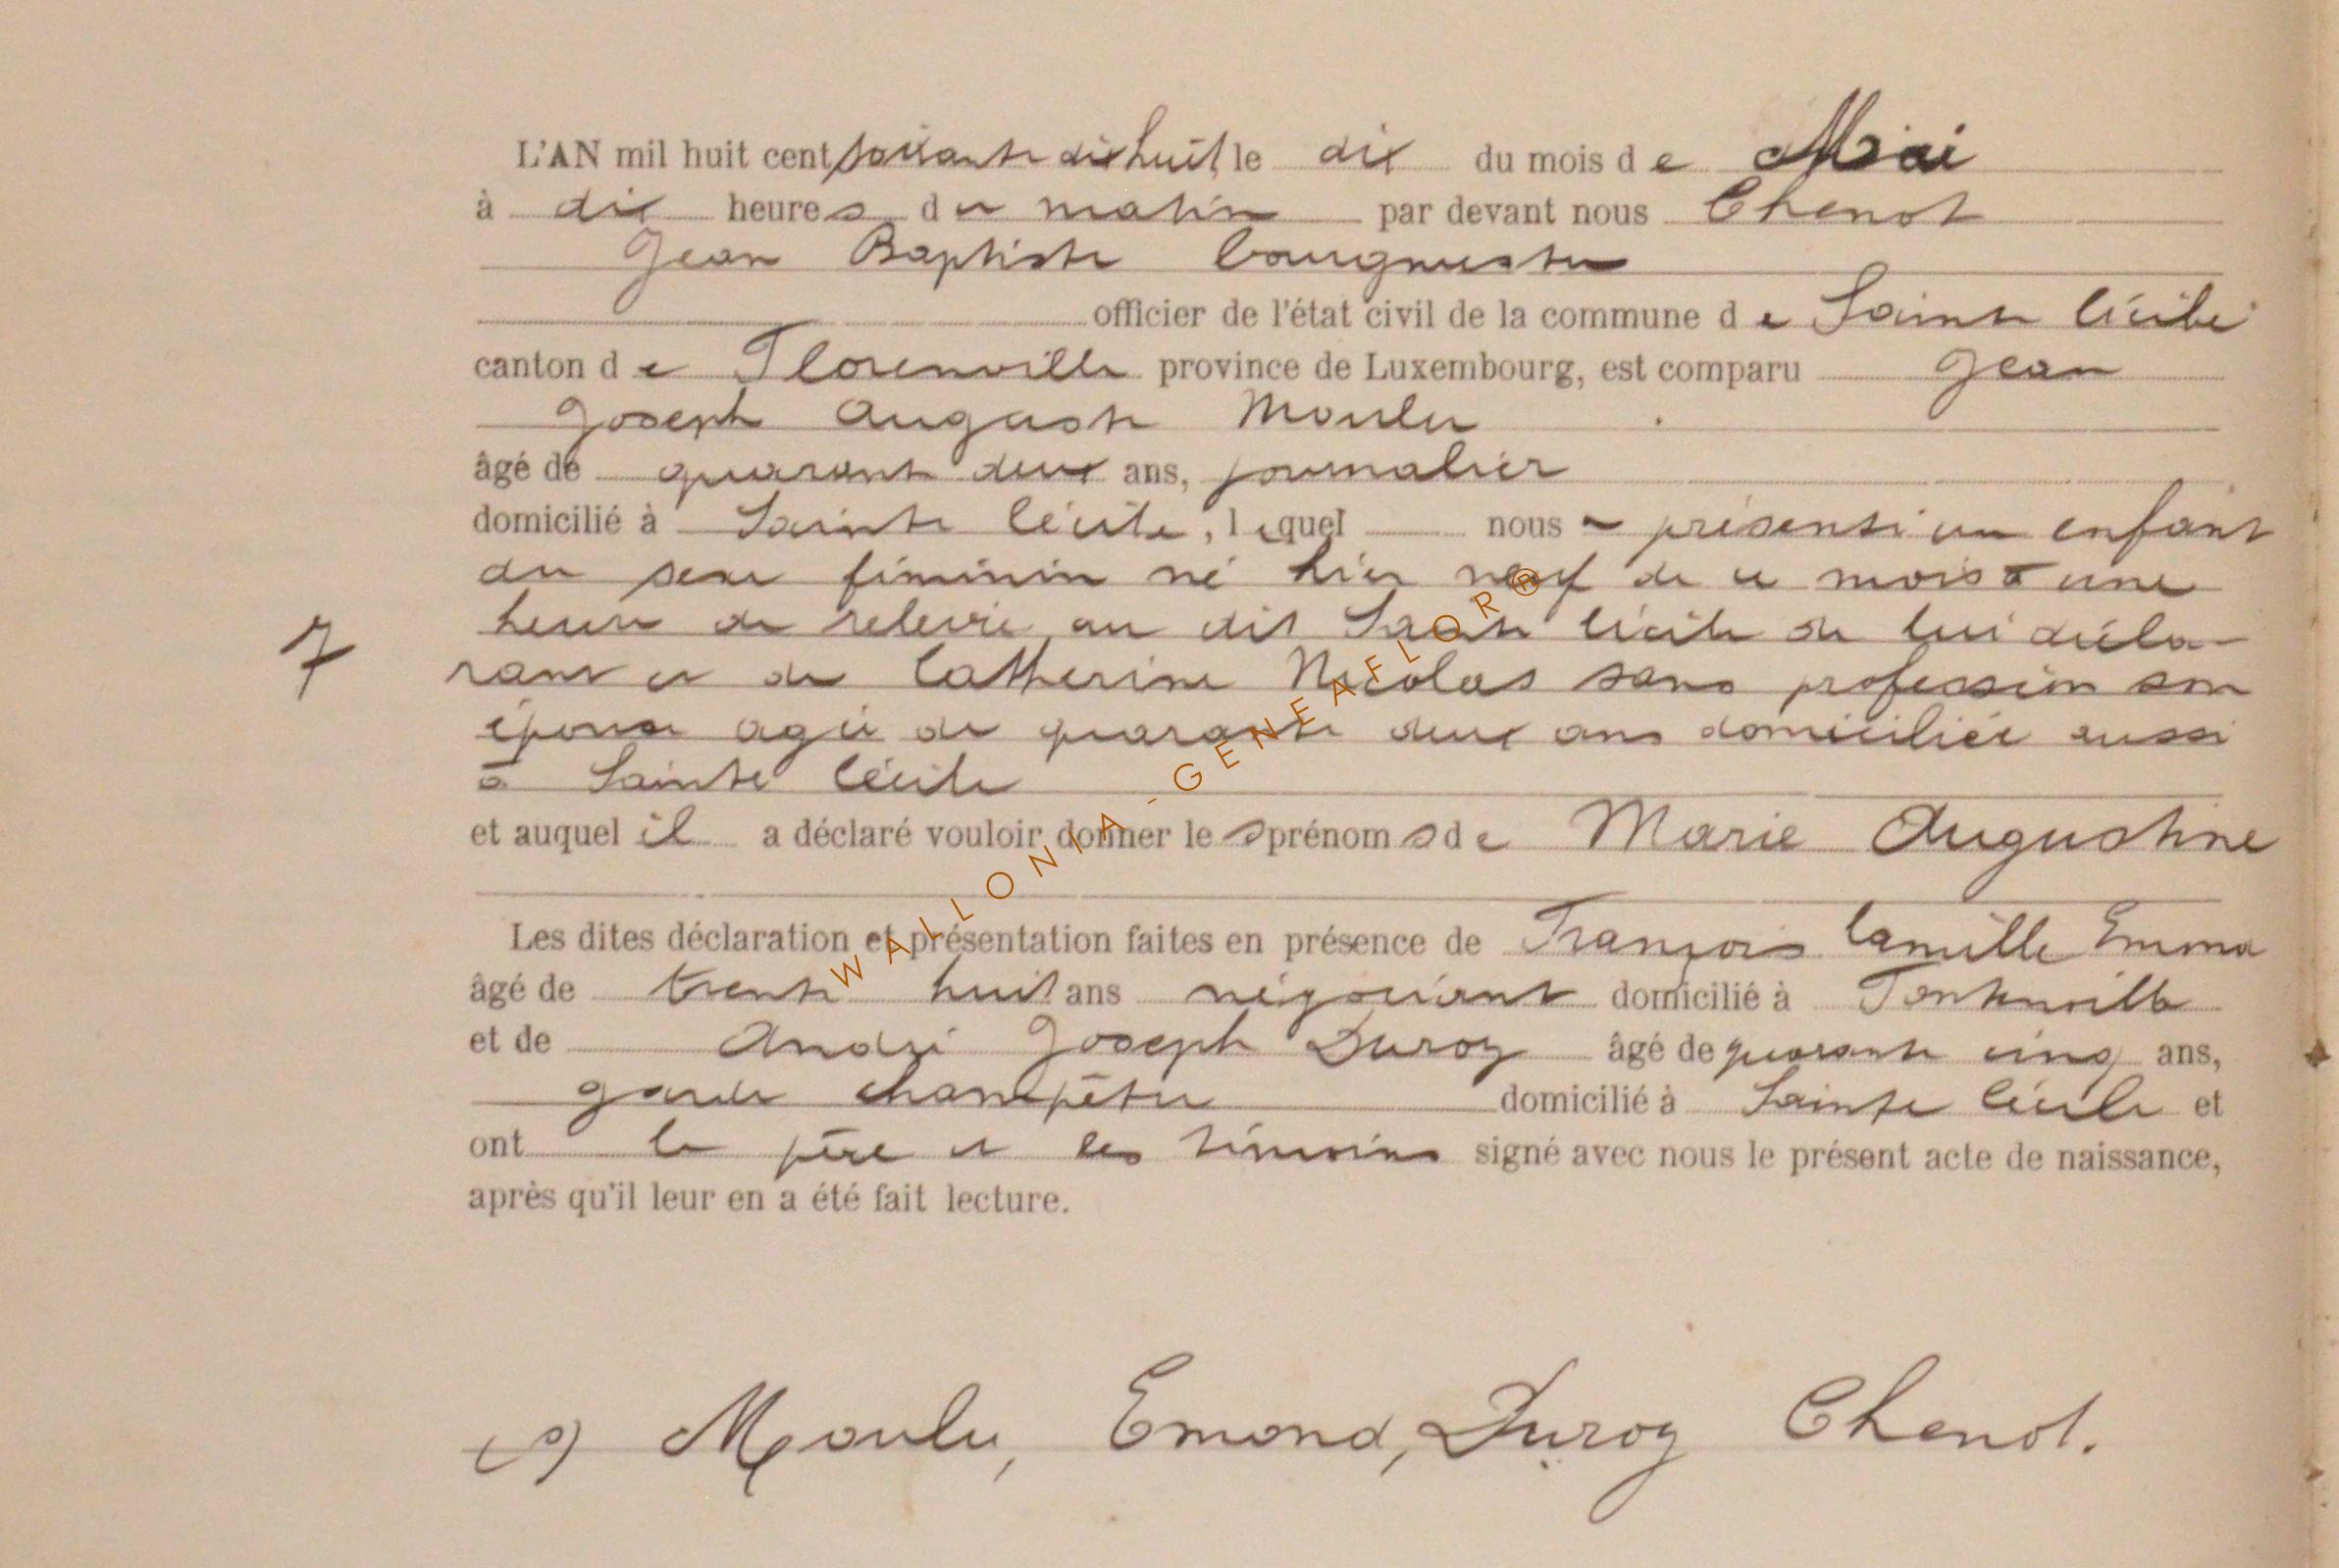 L'AN mil huit cent soixante dix huit, le dix du mois de Mai
à dix heures du matin par devant nous Chenot
Jean Baptiste Bourgmestre
officier de l'état civil de la commune de Sainte Cécile
canton de Florenville province de Luxembourg, est comparu Jean
Joseph Auguste Moulu
âgé de quarante deux ans, journalier
domicilié à Sainte Cécile, lequel nous a présenté un enfant
du sexe féminin né hier neuf de ce mois à une
heure de relevée au dit Sainte Cécile de lui décla-
7 rant et de Catherine Nicolas sans profession son
épouse agée de quarante deux ans domiciliée aussi
à Sainte Cécile
et auquel il a déclaré vouloir donner les prénoms de Marie Augustine
Les dites déclaration et présentation faites en présence de François Camille Emma
âgé de trente huit ans négociant domicilié à Fontenoille
et de André Joseph Duroy âgé de quarante cinq ans,
garde champêtre domicilié à Sainte Cécile et
ont le père et les témoins signé avec nous le présent acte de naissance,
après qu'il leur en a été fait lecture.
(s) Moulu, Emond, Duroy Chenot.
WALLONIA - GENEAFLOR®